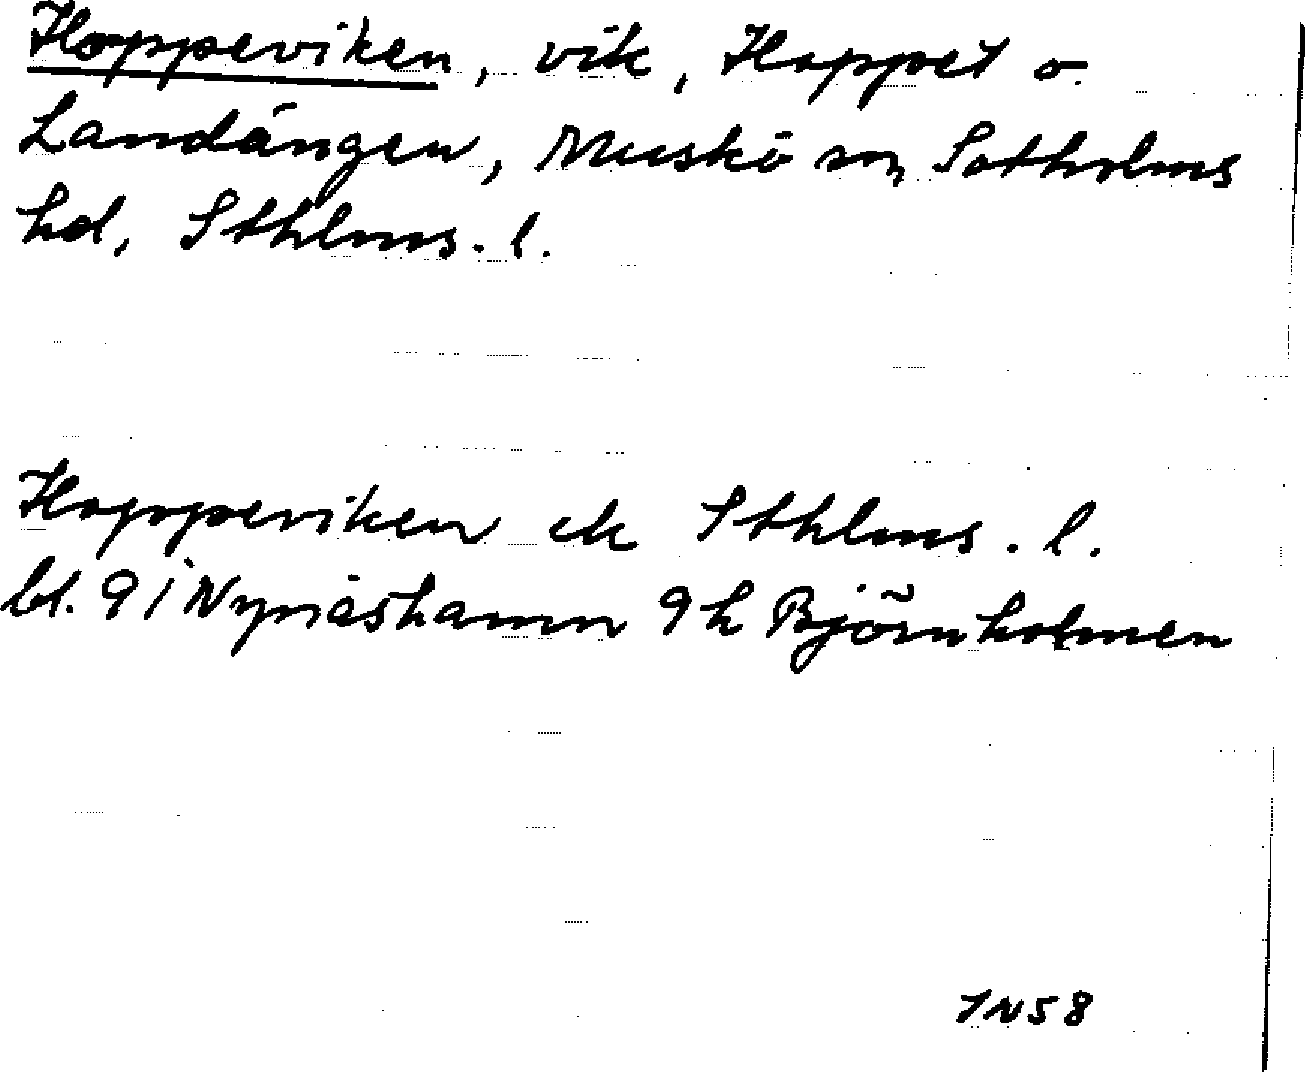 Hoppeviken, vik, Hoppet o.
Landängen, Muskö sn, Sotholms
hd, Sthlms. l.
Hoppeviken ek Sthlms. l.
bl. 91 Nynäshamn 9h Björnholmen
JN58